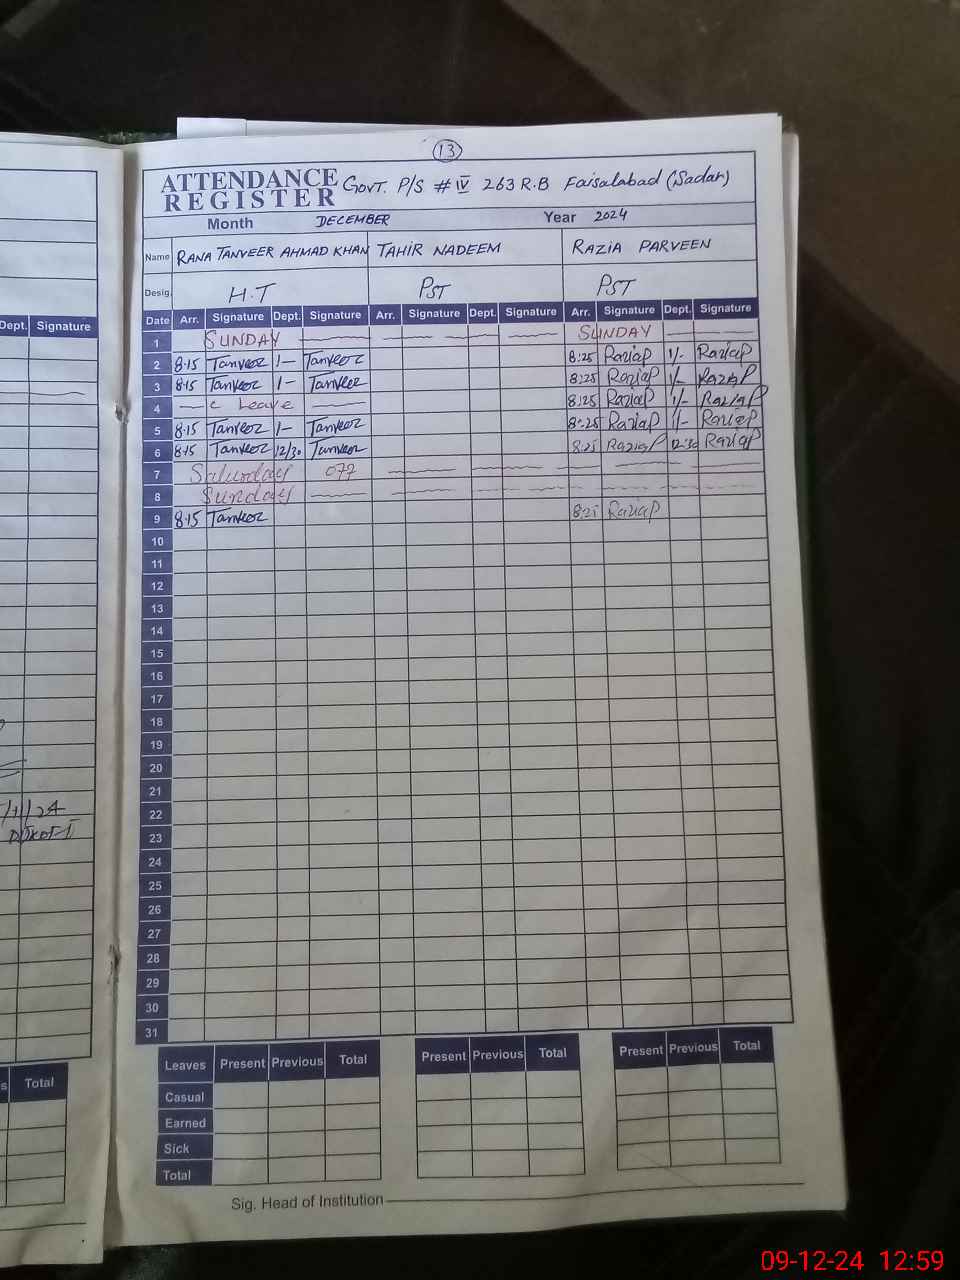 13
ATTENDANCE REGISTER GOVT. P/S # IV 263 R.B Faisalabad (Sadar)
Month DECEMBER Year 2024
Name RANA TANVEER AHMAD KHAN TAHIR NADEEM RAZIA PARVEEN
Desig. H.T PST PST
Dept. Signature
Date Arr. Signature Dept. Signature Arr. Signature Dept. Signature Arr. Signature Dept. Signature
1 SUNDAY SUNDAY
2 8.15 Tanveer 1- Tanveer 8:25 RaziaP 1/- RaziaP
3 8.15 Tanveer 1- Tanveer 8:25 RaziaP 1/- RaziaP
4 c Leave 8:25 RaziaP 1/- RaziaP
5 8.15 Tanveer 1- Tanveer 8:25 RaziaP 1/- RaziaP
6 8.15 Tanveer 12/30 Tanveer 8:25 RaziaP 12:30 RaziaP
7 Saturday off
8 Sunday
9 8.15 Tanveer RaziaP
10
11
12
13
14
15
16
17
18
19
20
21
22
23
24
25
26
27
28
29
30
31
Leaves Present Previous Total Present Previous Total Present Previous Total
Total
Casual
Earned
Sick
Total
Sig. Head of Institution
09-12-24 12:59